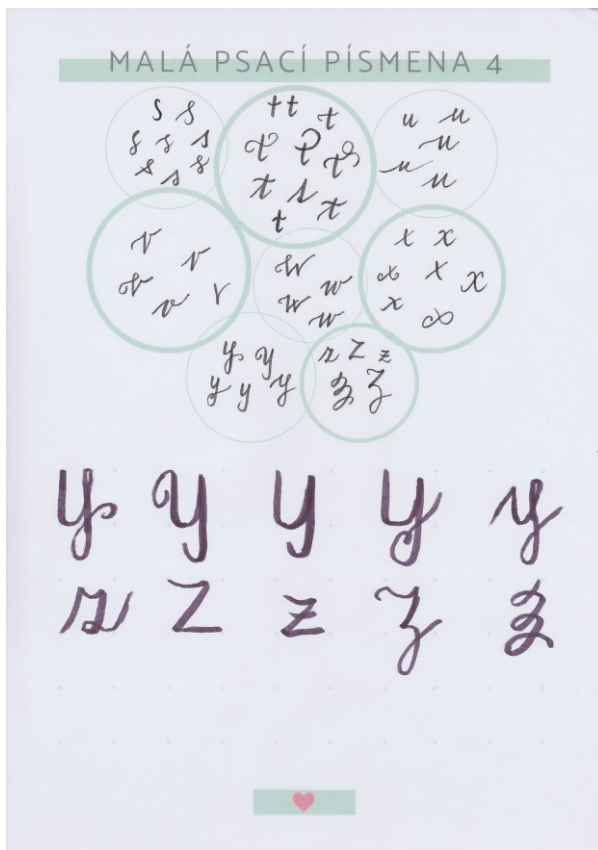 MALÁ PSACÍ PÍSMENA 4
s s
s s s
s s s
t t t
t t t
t t t
t
u u
u
u u
v v
v v v
w w
w w
x x
x x x
x x
y y
y y y
z z z
z z
y y y y y
z z z z z